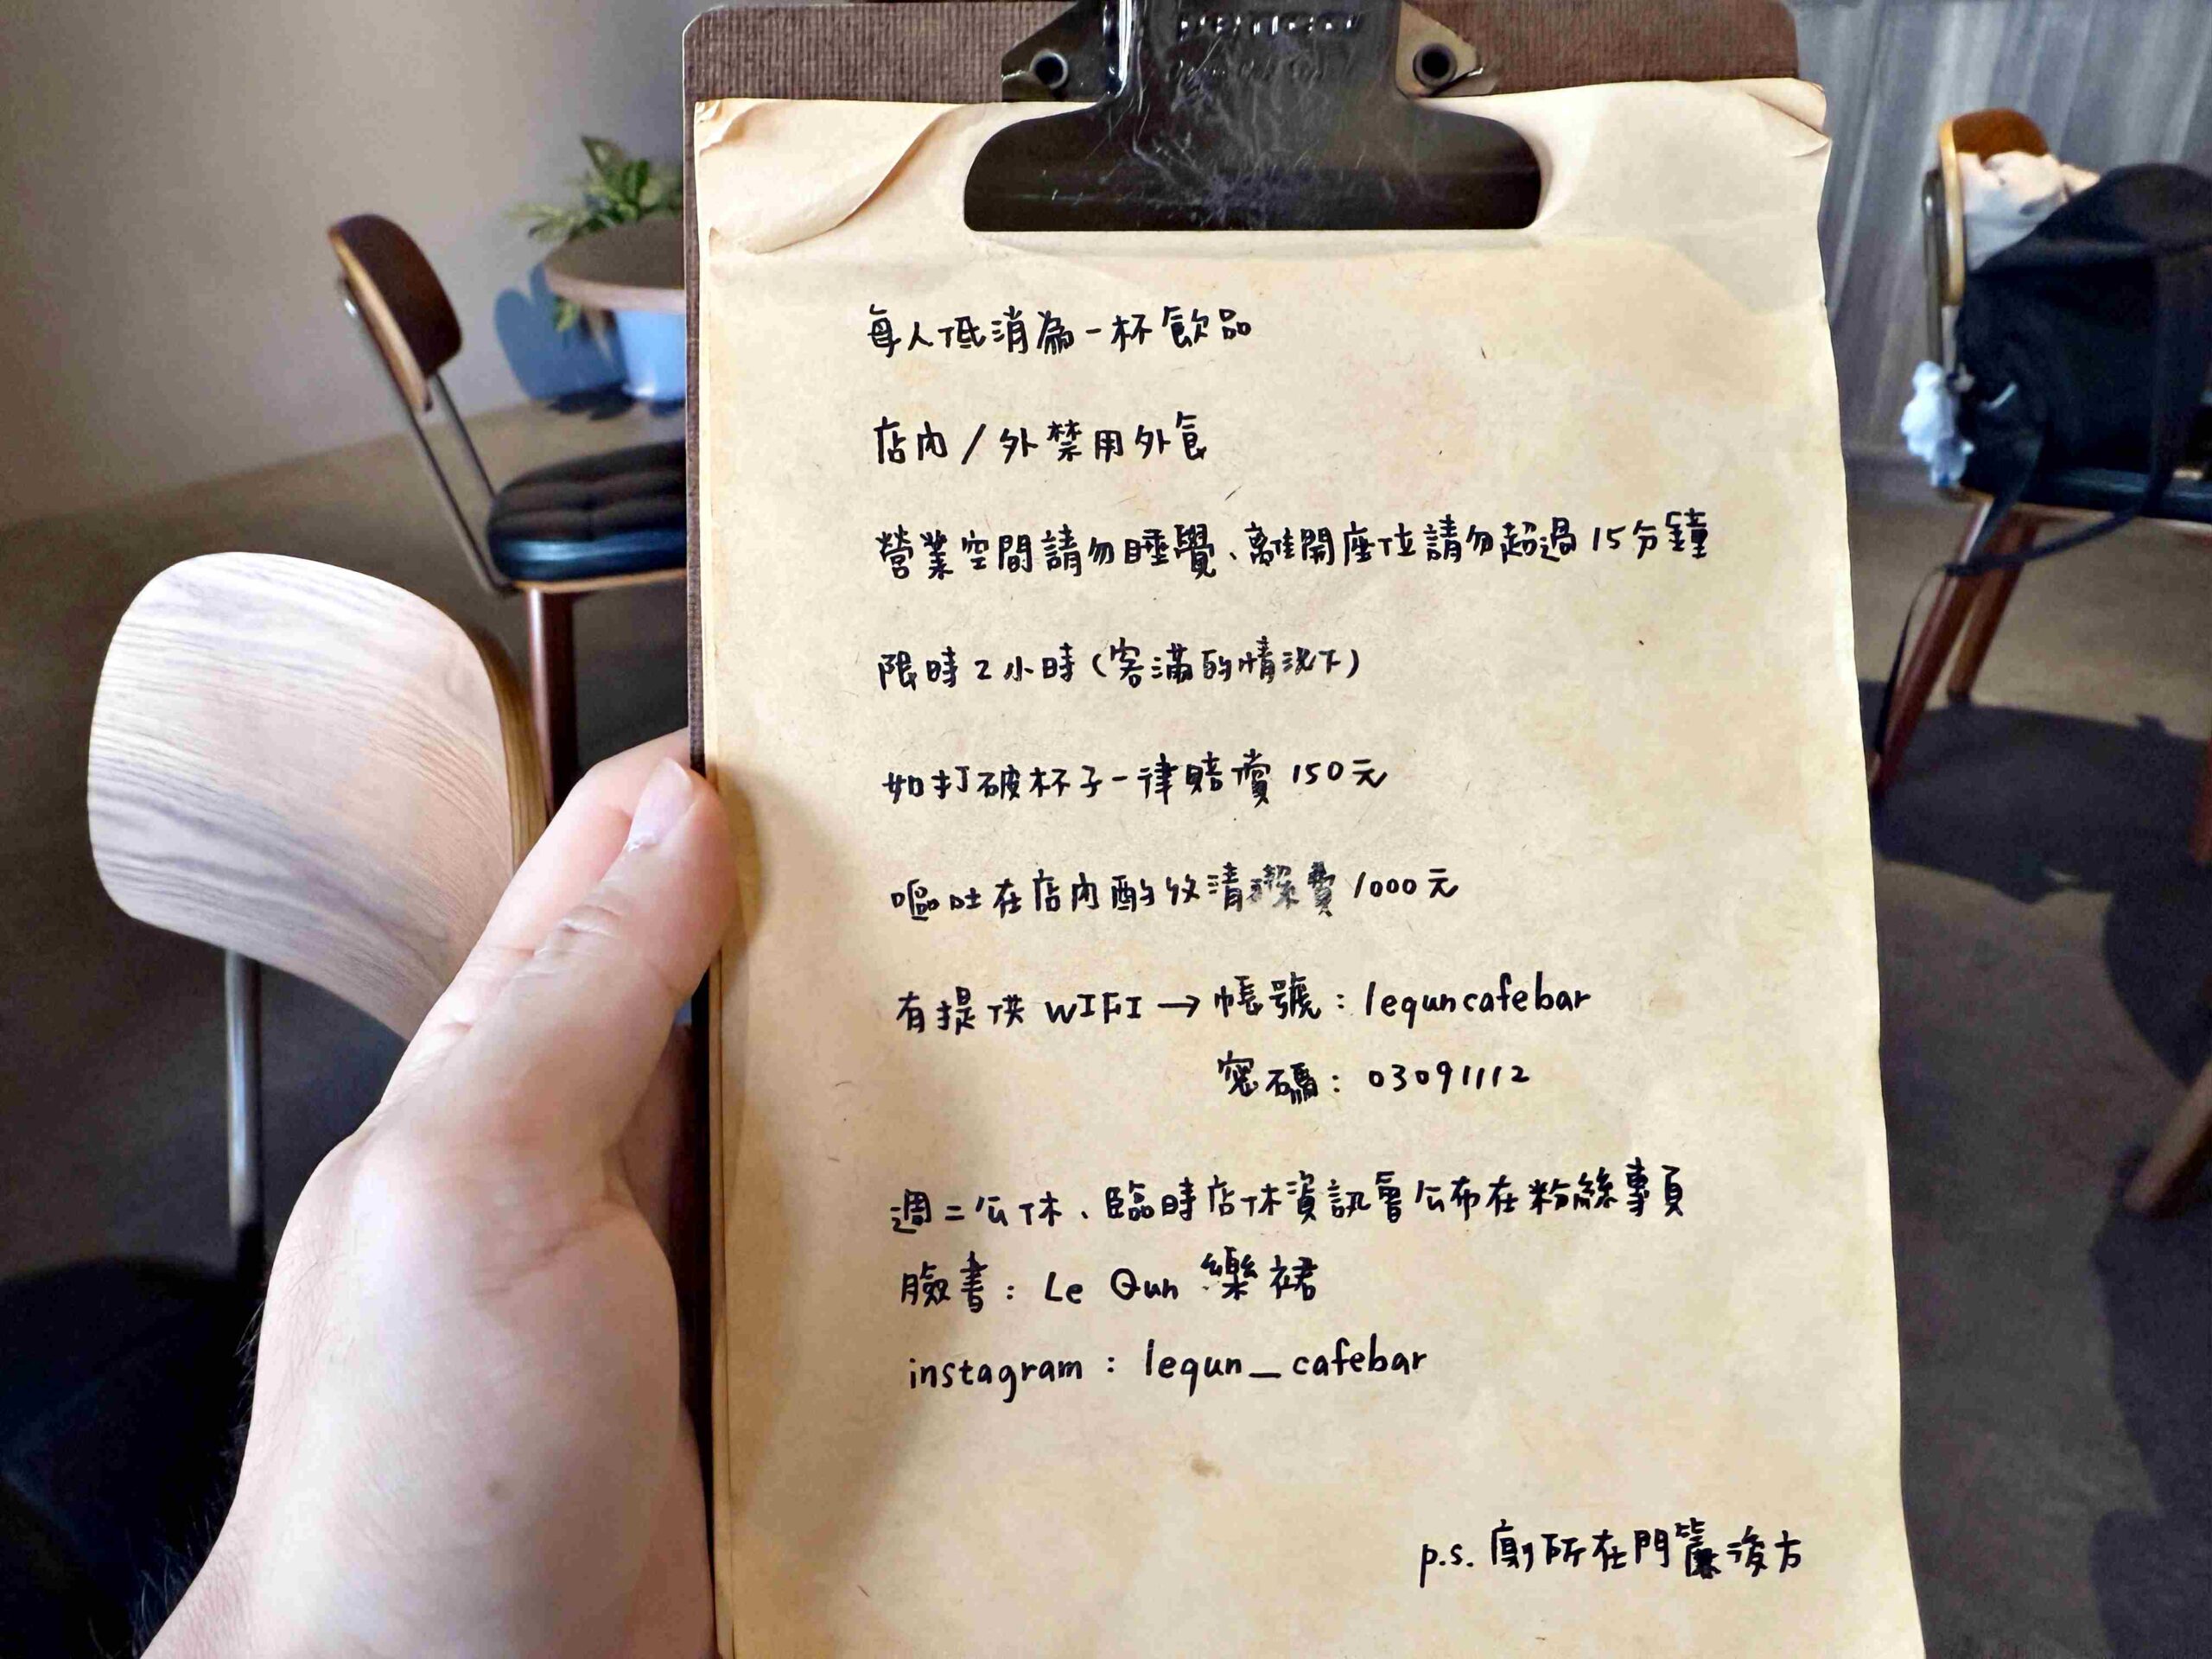 每人低消為一杯飲品
店內/外禁用外食
營業空間請勿睡覺、離開座位請勿超過15分鐘
限時2小時(客滿的情況下)
如打破杯子一律賠償150元
嘔吐在店內酌收清潔費1000元
有提供WIFI→帳號:lequncafebar
密碼:03091112
週二公休、臨時店休資訊會公布在粉絲專頁
臉書:Le Qun 樂裙
instagram:lequn_cafebar
p.s.廁所在門簾後方